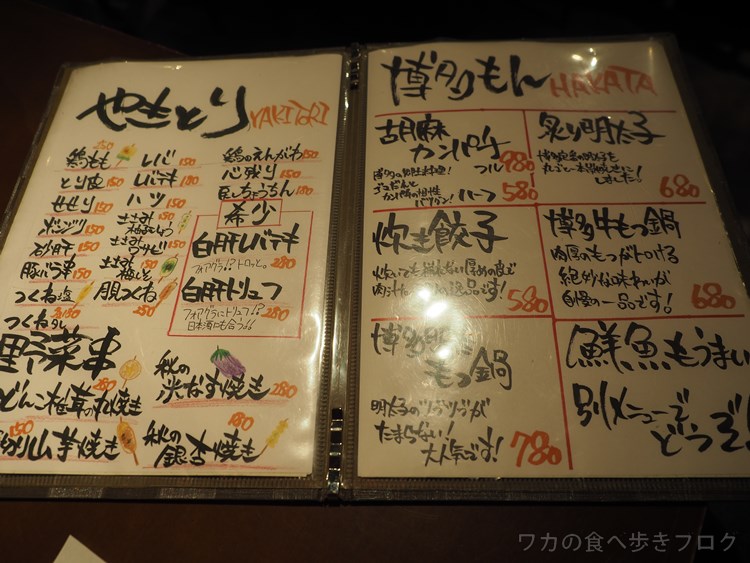 やきとり YAKITORI
鶏もも 250
とり皮 150
せせり 150
ボンジリ 150
砂肝 150
豚バラ串 150
つくね塩 150
つくねタレ 150
レバ 150
レバテキ 180
ハツ 150
ささみ
ささみ
ワサビ 150
ささみ
梅しそ 150
月見つくね 250
鶏のえんがわ 150
心残り 150
ちょうちん 180
希少
白肝レバテキ
フォアグラ!?トロッと。 280
白肝トリュフ
フォアグラにトリュフ!? 280
日本酒にも合う!!
野菜串
どんこ椎茸の丸焼き 280
山芋焼き 150
秋の
米なす焼き 280
秋の
銀杏焼き 180
博多もん HAKATA
胡麻
カンパチ
フル 980
ハーフ 580
炙り明太子
博多
丸ごと一本
しました! 680
炊き餃子
炊いても
肉汁
逸品です! 580
博多牛もつ鍋
肉厚のもつがとろける
絶妙な味わいが
自慢の一品です! 680
博多明太
もつ鍋
明太子のツブツブが
たまらない!
大人気です! 780
鮮魚もうまい
別メニューで
どうぞ!
ワカの食べ歩きブログ